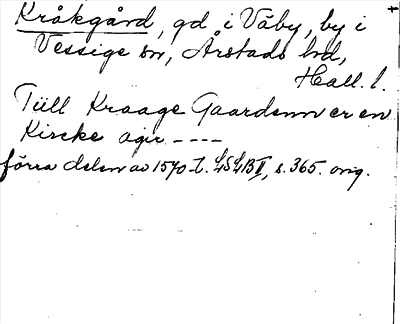 Kråkgård, gd i Väby, by i
Vessige sn, Årstads hd,
Hall. l.
Tiill Kraage Gaardenn er en
Kircke ager ----
förra delen av 1570-t. LSLB II, s. 365. orig.